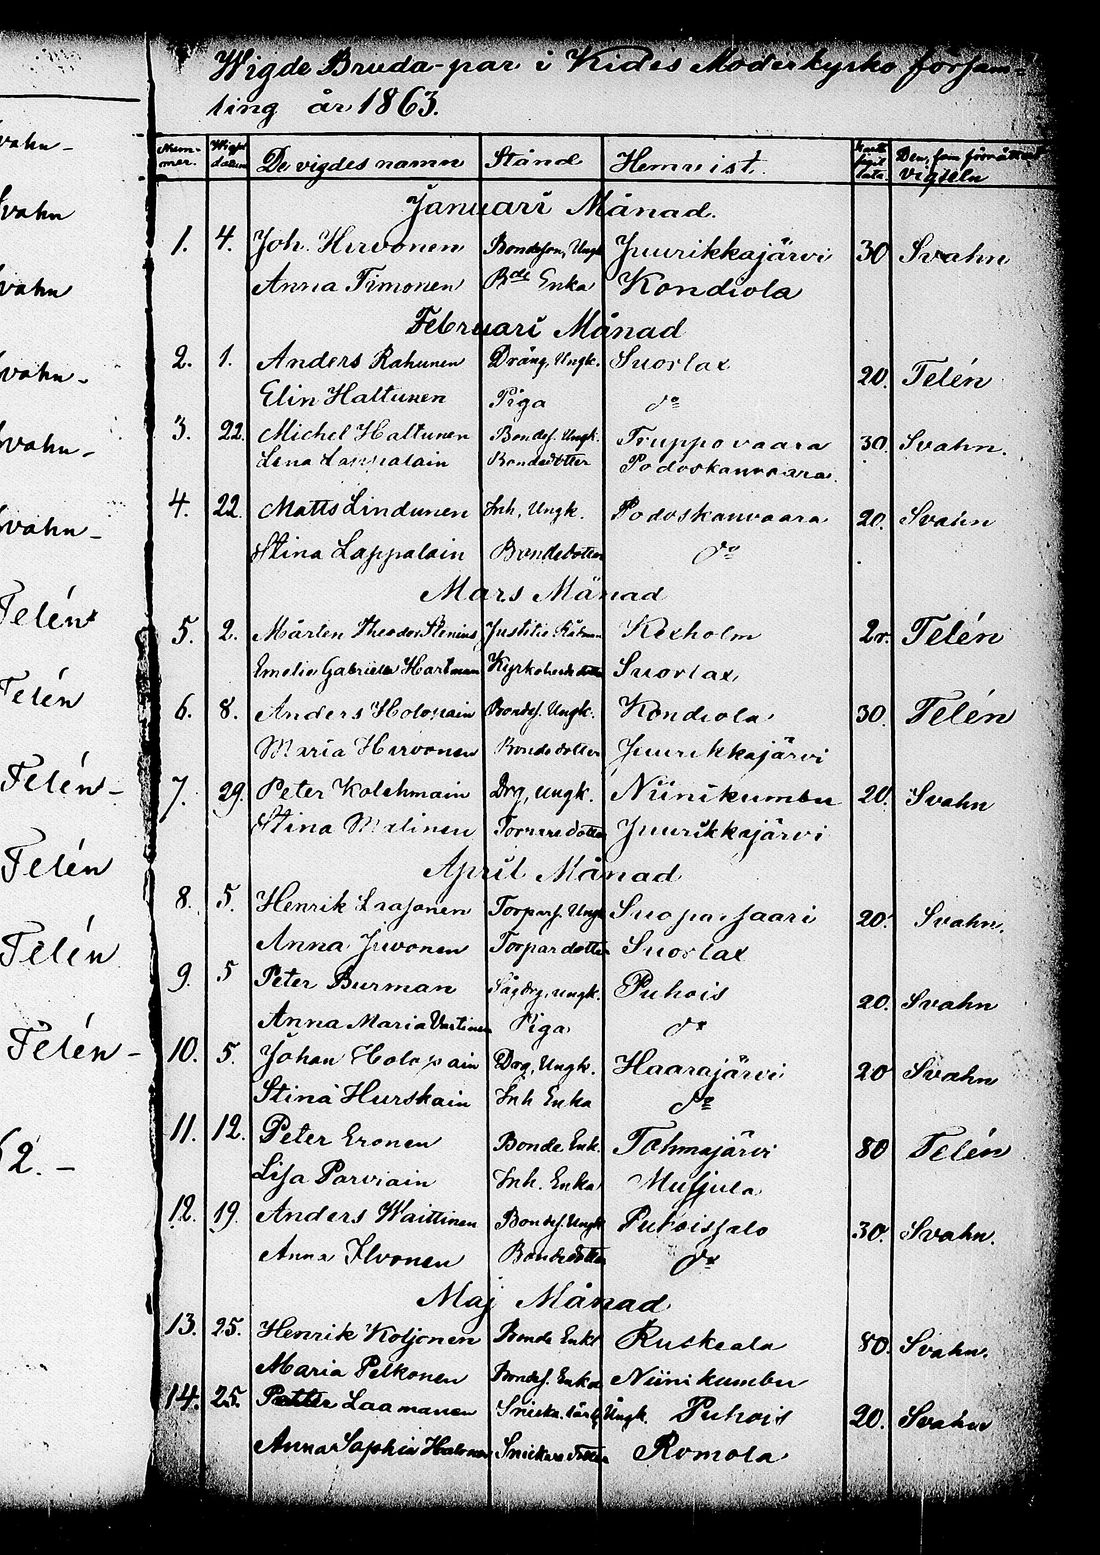 Wigde Bruda-par i Kides Moderkyrko försam-
ling år 1863.
Num-
mer. Wigs
datum De vigdes namn Stånd Hemvist. Den, som förrättat
vigseln
Januari Månad.
1. 4. Joh. Hirvonen Bondeson, Ungk Juurikkajärvi 30 Svahn
Anna Timonen Bde Enka Kondiola
Februari Månad
2. 1. Anders Rahunen Dräng, Ungk. Suorlax 20. Telén
Elin Haltunen Piga do
3. 22. Michel Haltunen Bondes. Ungk. Truppovaara 30. Svahn.
Lena Lappalain Bondedotter Podoskanvaara.
4. 22. Matts Lindunen Inh, Ungk. Podoskanvaara 20. Svahn
Stina Lappalain Bondedotter do
Mars Månad
5. 2. Mårten Theodor Stenius Justitie Rådman Kexholm 2r. Telén
Emelie Gabriela Hartman Suorlax
6. 8. Anders Holopain Bondes. Ungk. Kondiola 30. Telén
Maria Hirvonen Bondedotter Juurikkajärvi
7. 29. Peter Kolehmain Drg, Ungk. Niinikumbu 20. Svahn
Stina Matinen Torparedotter Juurikkajärvi
April Månad
8. 5. Henrik Laasonen Torpars. Ungk Suoparsaari 20. Svahn.
Anna Juvonen Torpardotter Suorlax
9. 5 Peter Burman Sågdrg, Ungk. Puhois 20. Svahn
Anna Maria Vartinen Piga do
10. 5. Johan Holopain Drg, Ungk. Haarajärvi 20 Svahn
Stina Hurskain Inh Enka do
11. 12. Peter Eronen Bonde Enk. Tohmajärvi 80 Telén
Lisa Parviain Inh. Enka Musjula
12. 19. Anders Waittinen Bondes. Ungk Puhoissalo 30. Svahn.
Anna Ilvonen Bondedotter do
Maj Månad
13. 25. Henrik Koljonen Bonde Enkl Ruskeala 80. Svahn.
Maria Pelkonen Bondes. Enka Niinikumbu
14. 25. Petter Laamanen Snick. lärl, Ungk. Puhois 20. Svahn
Anna Sophia Halonen Snickaredotter Romola
Svahn -
Svahn
Svahn
Svahn -
Svahn -
Svahn -
Telén
Telén
Telén -
Telén
Telén
Telén -
62. -